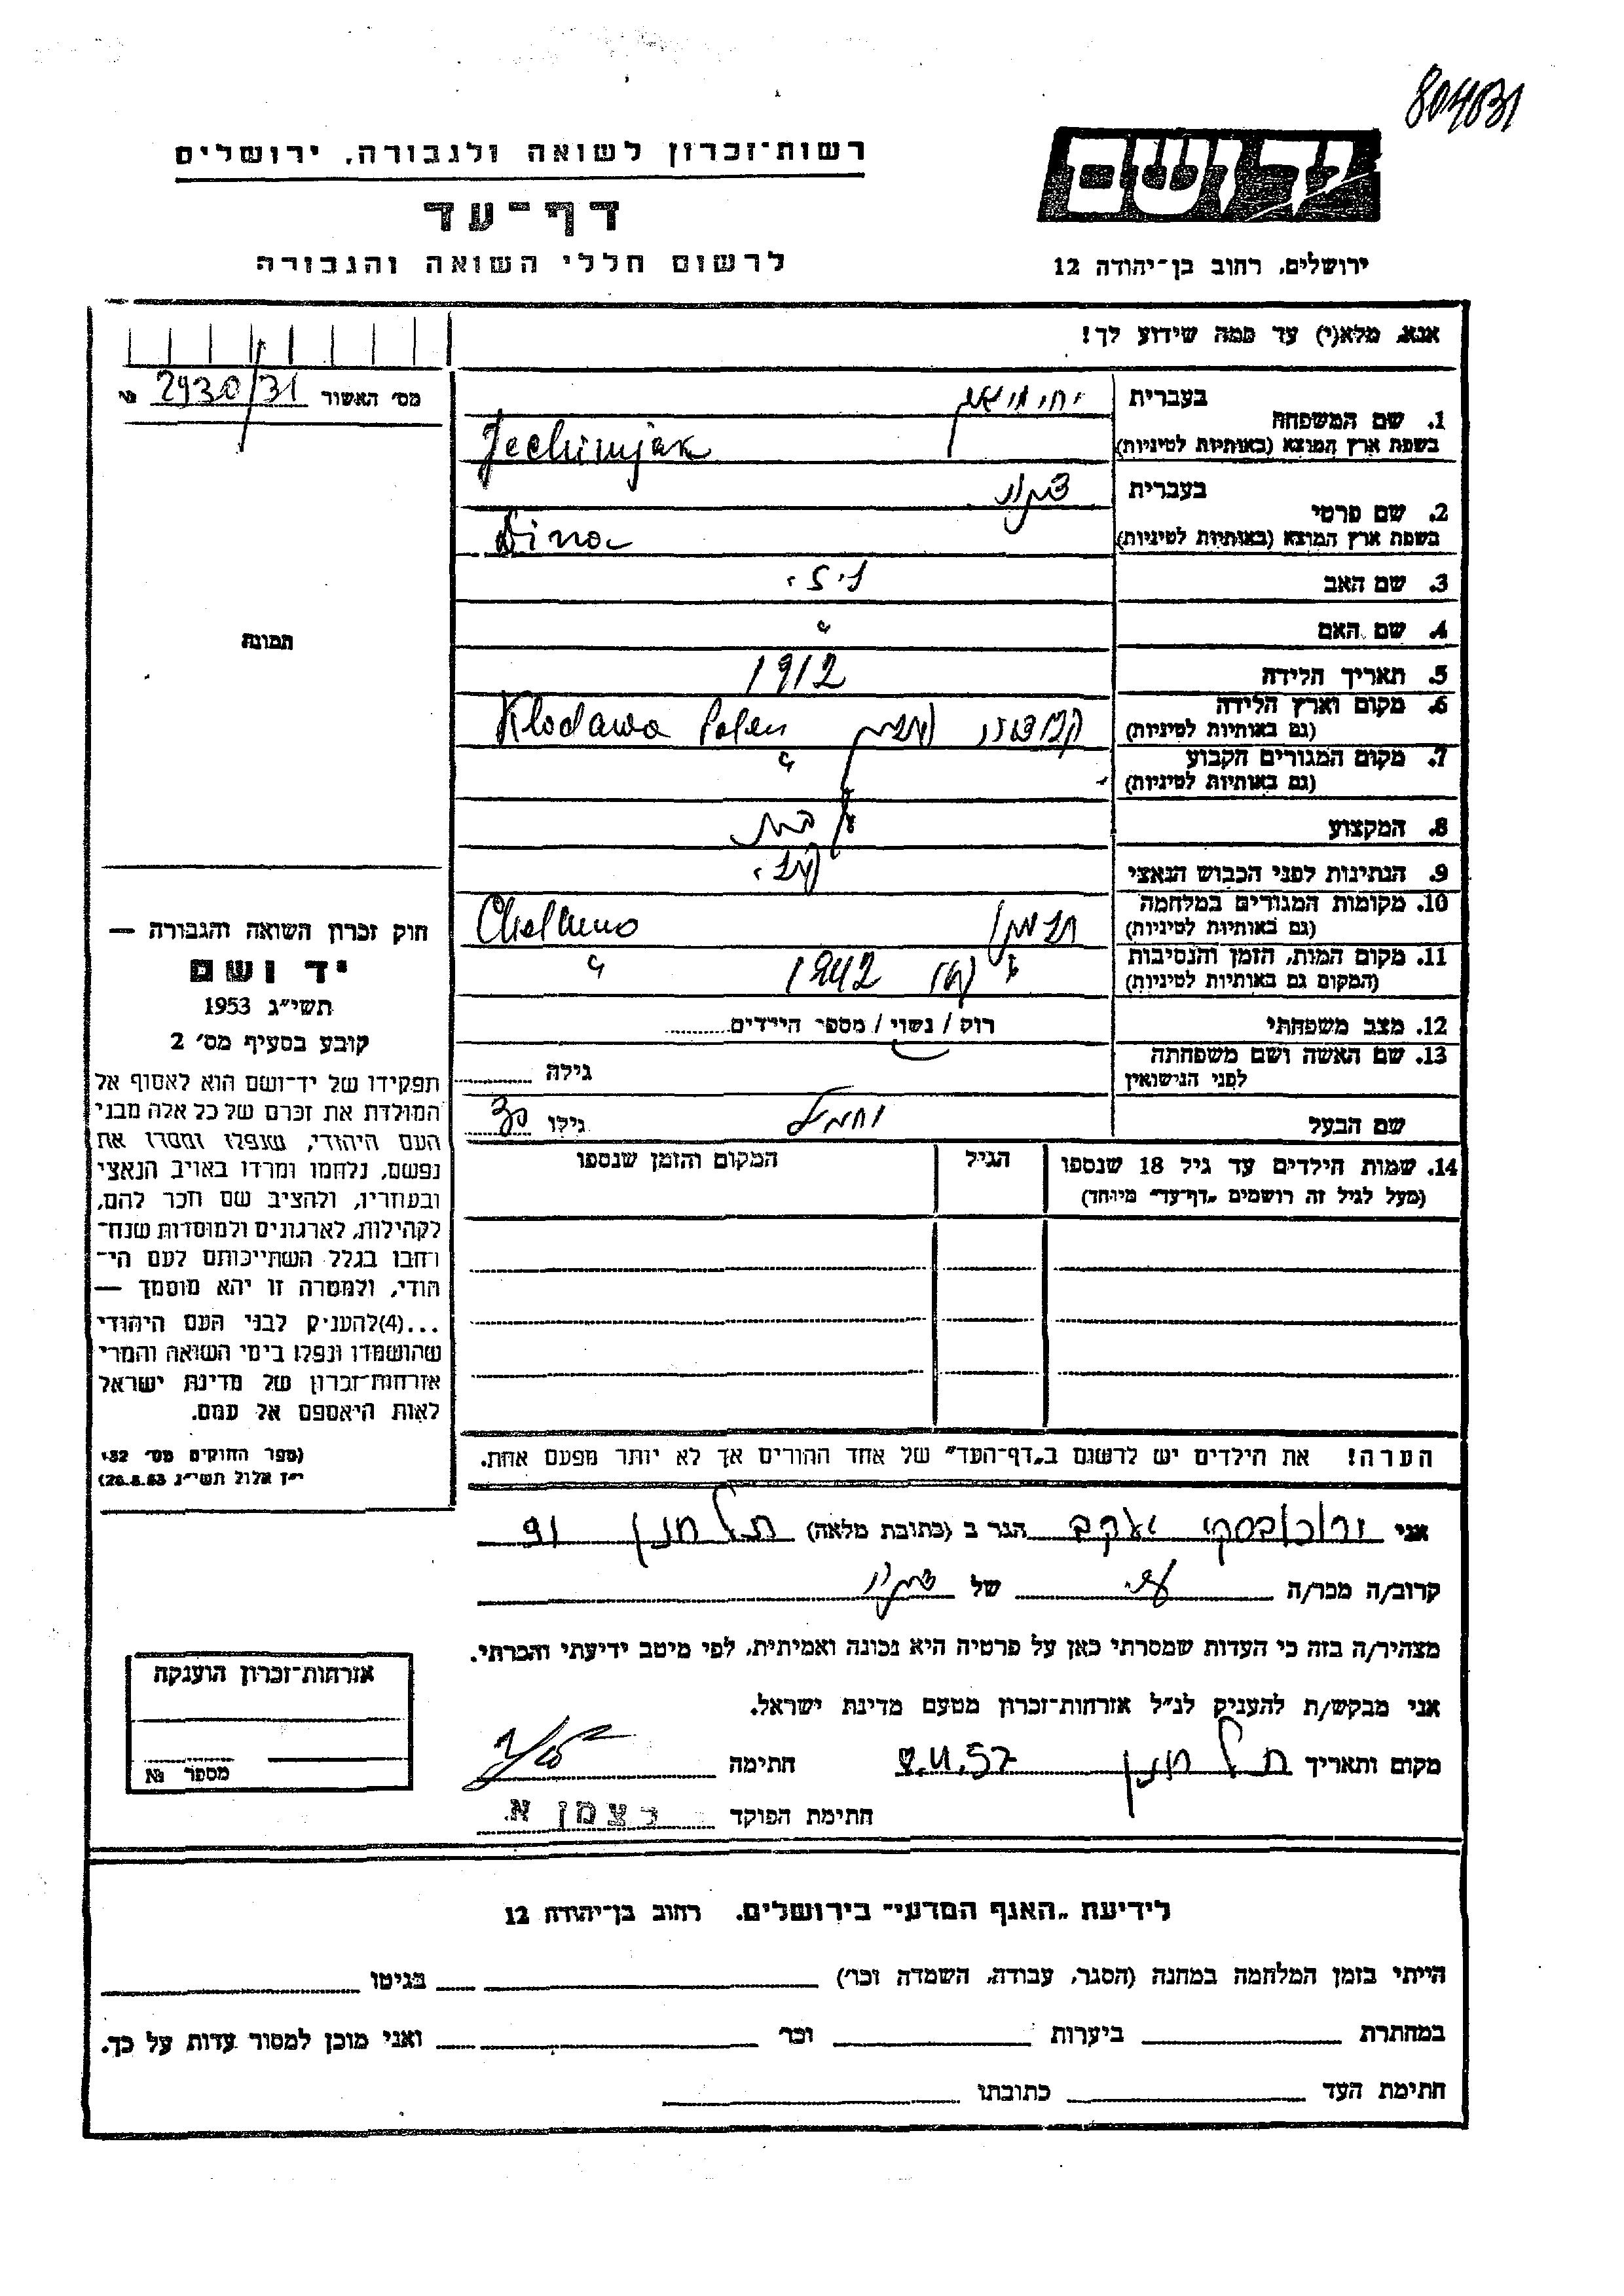 804631
רשות־זכרון לשואה ולגבורה, ירושלים
דף־עד
לרשום חללי השואה והגבורה
יד ושם
ירושלים, רחוב בן־יהודה 12
אנא, מלא(י) עד כמה שידוע לך!
מס׳ האשור 2930/31 №
1. שם המשפחה
בעברית
בשפת ארץ המוצא (באותיות לטיניות) Jechimjak
2. שם פרטי
בעברית
בשפת ארץ המוצא (באותיות לטיניות) Dina
3. שם האב
4. שם האם "
5. תאריך הלידה 1912
6. מקום וארץ הלידה
(גם באותיות לטיניות) Klodawa Polen
7. מקום המגורים הקבוע "
(גם באותיות לטיניות)
8. המקצוע
9. הנתינות לפני הכבוש הנאצי
10. מקומות המגורים במלחמה
(גם באותיות לטיניות) Chelmno
11. מקום המות, הזמן והנסיבות 1942 "
(המקום גם באותיות לטיניות)
12. מצב משפחתי רווק / נשוי / מספר הילדים
13. שם האשה ושם משפחתה
לפני הנישואין גילה
שם הבעל גילו
14. שמות הילדים עד גיל 18 שנספו הגיל המקום והזמן שנספו
(מעל לגיל זה רושמים „דף־עד״ מיוחד)
הערה! את הילדים יש לרשום ב„דף־העד״ של אחד ההורים אך לא יותר מפעם אחת.
תמונה
חוק זכרון השואה והגבורה —
יד ושם
תשי״ג 1953
קובע בסעיף מס׳ 2
תפקידו של יד־ושם הוא לאסוף אל
המולדת את זכרם של כל אלה מבני
העם היהודי, שנפלו ומסרו את
נפשם, נלחמו ומרדו באויב הנאצי
ובעוזריו, ולהציב שם וזכר להם,
לקהילות, לארגונים ולמוסדות שנח־
רבו בגלל השתייכותם לעם הי־
הודי, ולמטרה זו יהא מוסמך —
...(4)להעניק לבני העם היהודי
שהושמדו ונפלו בימי השואה והמרי
אזרחות־זכרון של מדינת ישראל
לאות היאספם אל עמם.
(ספר החוקים מס׳ 132
י״ז אלול תשי״ג 28.8.53)
אני יעקב הגר ב (כתובת מלאה) תל חנן 91
קרוב/ה מכר/ה של
מצהיר/ה בזה כי העדות שמסרתי כאן על פרטיה היא נכונה ואמיתית, לפי מיטב ידיעתי והכרתי.
אני מבקש/ת להעניק לנ״ל אזרחות־זכרון מטעם מדינת ישראל.
מקום ותאריך תל חנן חתימה
חתימת הפוקד כצמן א.
אזרחות־זכרון הוענקה
מספר №
לידיעת „האגף המדעי״ בירושלים, רחוב בן־יהודה 12
הייתי בזמן המלחמה במחנה (הסגר, עבודה, השמדה וכו׳) בגיטו
במחתרת ביערות וכו׳ ואני מוכן למסור עדות על כך.
חתימת העד כתובתו